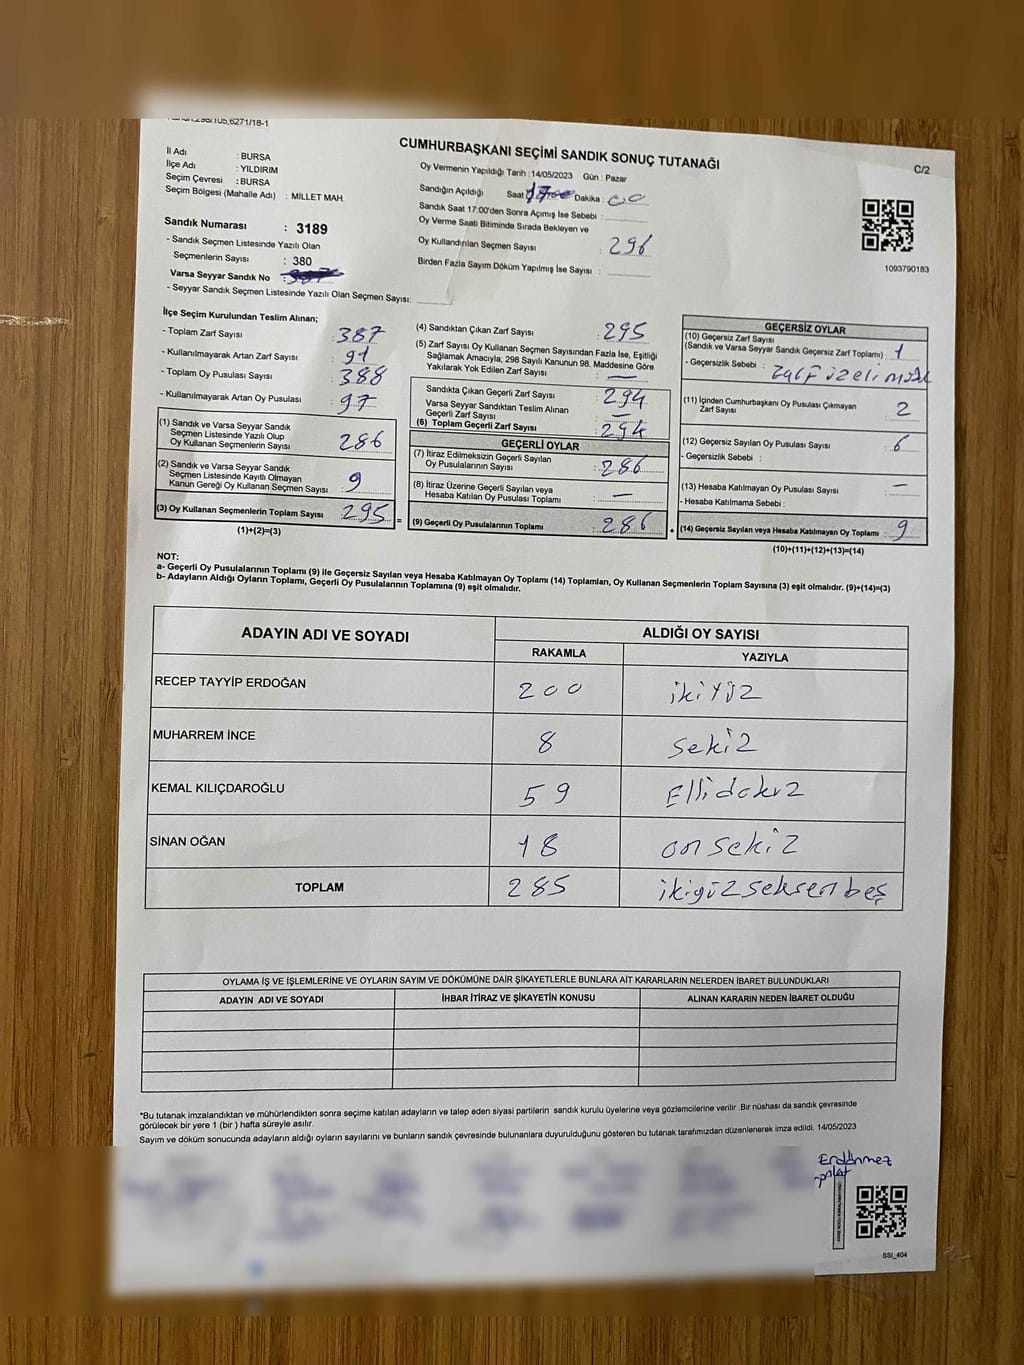 CUMHURBAŞKANI SEÇİMİ SANDIK SONUÇ TUTANAĞI
C/2
İl Adı : BURSA
İlçe Adı : YILDIRIM
Seçim Çevresi : BURSA
Seçim Bölgesi (Mahalle Adı) : MİLLET MAH.
Oy Vermenin Yapıldığı Tarih : 14/05/2023 Gün : Pazar
Sandığın Açıldığı Saat Dakika : 00
Sandık Saat 17:00'den Sonra Açılmış İse Sebebi :
Oy Verme Saati Bitiminde Sırada Bekleyen ve
Oy Kullandırılan Seçmen Sayısı : 296
Birden Fazla Sayım Döküm Yapılmış İse Sayısı :
1093790183
Sandık Numarası : 3189
- Sandık Seçmen Listesinde Yazılı Olan
Seçmenlerin Sayısı : 380
Varsa Seyyar Sandık No :
- Seyyar Sandık Seçmen Listesinde Yazılı Olan Seçmen Sayısı:
İlçe Seçim Kurulundan Teslim Alınan;
- Toplam Zarf Sayısı : 387
- Kullanılmayarak Artan Zarf Sayısı : 91
- Toplam Oy Pusulası Sayısı : 388
- Kullanılmayarak Artan Oy Pusulası : 97
(1) Sandık ve Varsa Seyyar Sandık
Seçmen Listesinde Yazılı Olup
Oy Kullanan Seçmenlerin Sayısı : 286
(2) Sandık ve Varsa Seyyar Sandık
Seçmen Listesinde Kayıtlı Olmayan
Kanun Gereği Oy Kullanan Seçmen Sayısı : 9
(3) Oy Kullanan Seçmenlerin Toplam Sayısı : 295
(1)+(2)=(3)
(4) Sandıktan Çıkan Zarf Sayısı : 295
(5) Zarf Sayısı Oy Kullanan Seçmen Sayısından Fazla İse, Eşitliği
Sağlamak Amacıyla; 298 Sayılı Kanunun 98. Maddesine Göre
Yakılarak Yok Edilen Zarf Sayısı : —
Sandıkta Çıkan Geçerli Zarf Sayısı : 294
Varsa Seyyar Sandıktan Teslim Alınan
Geçerli Zarf Sayısı : —
(6) Toplam Geçerli Zarf Sayısı : 294
GEÇERLİ OYLAR
(7) İtiraz Edilmeksizin Geçerli Sayılan
Oy Pusulalarının Sayısı : 286
(8) İtiraz Üzerine Geçerli Sayılan veya
Hesaba Katılan Oy Pusulası Toplamı : —
= (9) Geçerli Oy Pusulalarının Toplamı : 286
GEÇERSİZ OYLAR
(10) Geçersiz Zarf Sayısı
(Sandık ve Varsa Seyyar Sandık Geçersiz Zarf Toplamı) : 1
- Geçersizlik Sebebi :
(11) İçinden Cumhurbaşkanı Oy Pusulası Çıkmayan
Zarf Sayısı : 2
(12) Geçersiz Sayılan Oy Pusulası Sayısı : 6
- Geçersizlik Sebebi :
(13) Hesaba Katılmayan Oy Pusulası Sayısı : —
- Hesaba Katılmama Sebebi :
+ (14) Geçersiz Sayılan veya Hesaba Katılmayan Oy Toplamı : 9
(10)+(11)+(12)+(13)=(14)
NOT:
a- Geçerli Oy Pusulalarının Toplamı (9) ile Geçersiz Sayılan veya Hesaba Katılmayan Oy Toplamı (14) Toplamları, Oy Kullanan Seçmenlerin Toplam Sayısına (3) eşit olmalıdır. (9)+(14)=(3)
b- Adayların Aldığı Oyların Toplamı, Geçerli Oy Pusulalarının Toplamına (9) eşit olmalıdır.
ADAYIN ADI VE SOYADI ALDIĞI OY SAYISI
RAKAMLA YAZIYLA
RECEP TAYYİP ERDOĞAN 200 ikiyüz
MUHARREM İNCE 8 sekiz
KEMAL KILIÇDAROĞLU 59 Ellidokuz
SİNAN OĞAN 18 onsekiz
TOPLAM 285 ikiyüzseksenbeş
OYLAMA İŞ VE İŞLEMLERİNE VE OYLARIN SAYIM VE DÖKÜMÜNE DAİR ŞİKAYETLERLE BUNLARA AİT KARARLARIN NELERDEN İBARET BULUNDUKLARI
ADAYIN ADI VE SOYADI İHBAR İTİRAZ VE ŞİKAYETİN KONUSU ALINAN KARARIN NEDEN İBARET OLDUĞU
*Bu tutanak imzalandıktan ve mühürlendikten sonra seçime katılan adayların ve talep eden siyasi partilerin sandık kurulu üyelerine veya gözlemcilerine verilir. Bir nüshası da sandık çevresinde
görülecek bir yere 1 (bir ) hafta süreyle asılır.
Sayım ve döküm sonucunda adayların aldığı oyların sayılarını ve bunların sandık çevresinde bulunanlara duyurulduğunu gösteren bu tutanak tarafımızdan düzenlenerek imza edildi. 14/05/2023
SSI_404